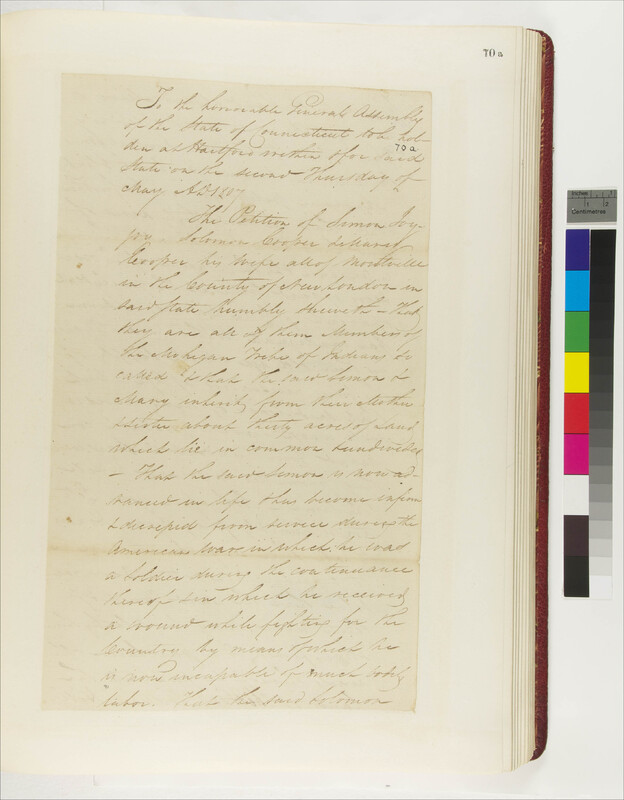 70 a
To the honourable General Assembly
of the State of Connecticut to be hol-
70 a
den at Hartford within & for said
State on the second Thursday of
May AD 1807
The Petition of Simon Joy-
joy Solomon Cooper & Mary
Cooper his wife all of Montville
in the County of New London in
said State humbly sheweth - That
they are all of them Members of
the Mohegan Tribe of Indians so
called & that the said Simon &
Mary inherit from their Mother
& Sister about thirty acres of land
which lie in common & undivided
- That the said Simon is now ad-
vanced in life & has become infirm
& decreped from service during the
American War in which he was
a Soldier during the continuance
thereof & in which he received
a wound while fighting for the
Country by means of which he
is now incapable of much bodily
labor. That the said Solomon
Inches
1 2
Centimetres